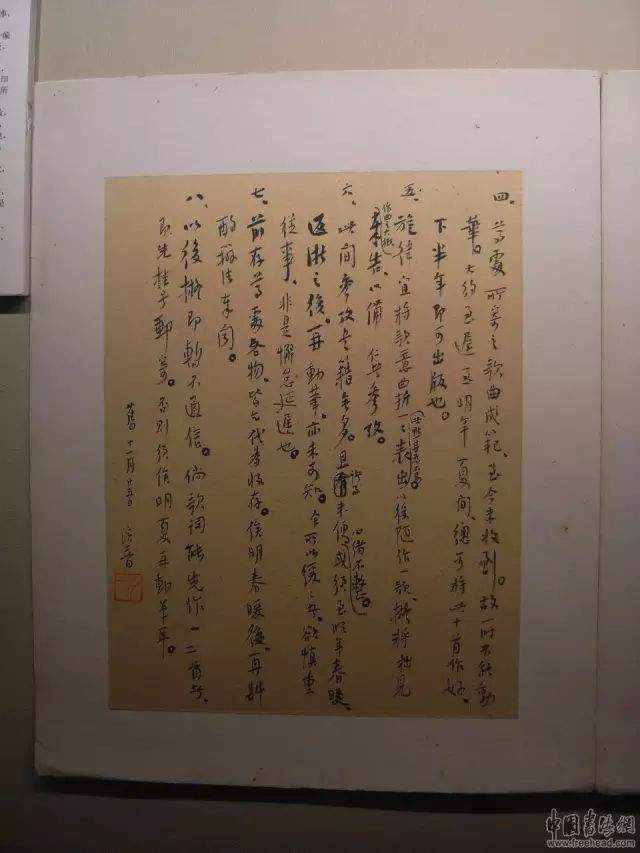 四、尊處所寄之歌曲成範、至今未收到。故一時不能動
筆。大約至遲至明年夏間、總可將此十首作好、
下半年即可出版也。
五、旋律宜將歌意曲折一一表出、以後隨作一歌、擬將拙見
奉告、以備仁者參攷。
六、此間參攷書籍無多。且未便、或須至明年春暖、
返浙之後、再動筆、亦未可知。今所以緩緩者、欲慎重
從事、非是懈怠延遲也。
七、前存尊處各物、皆乞代為收存。俟明春暖後、再斟
酌辦法奉聞。
八、以後擬即暫不通信。倘歌詞能先作一二首者、
乞先掛号郵寄。否則須俟明夏再動筆耳。
舊十一月廿 演音
中国书法網
www.freehead.com